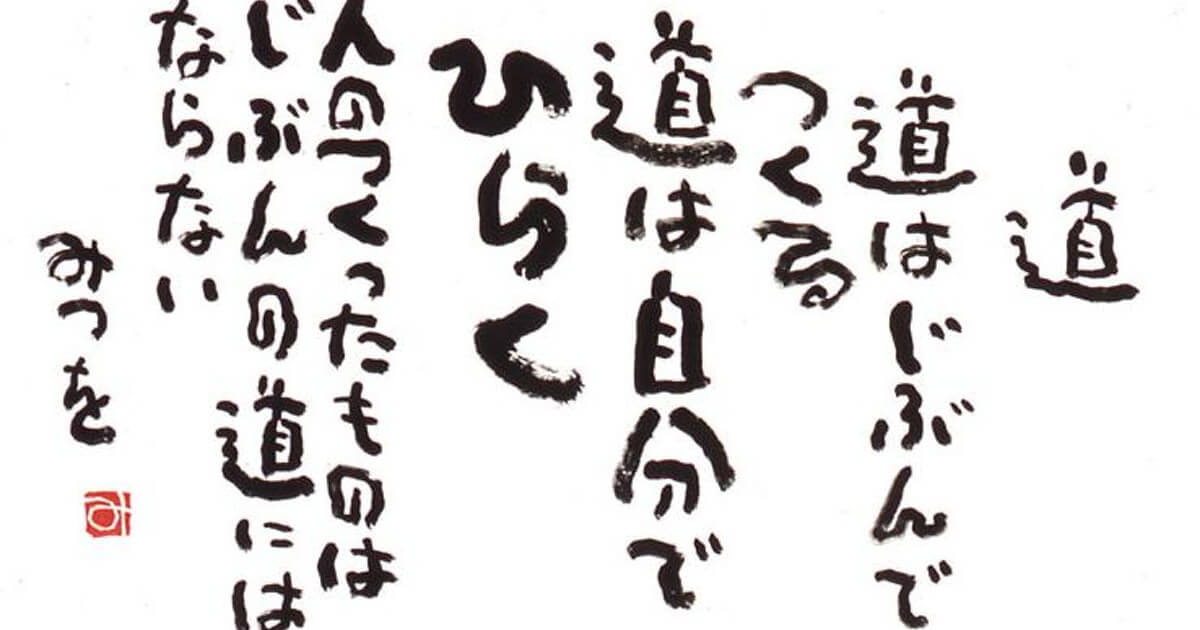 道
道はじぶんで
つくる
道は自分で
ひらく
人のつくったものは
じぶんの道には
ならない
みつを
み